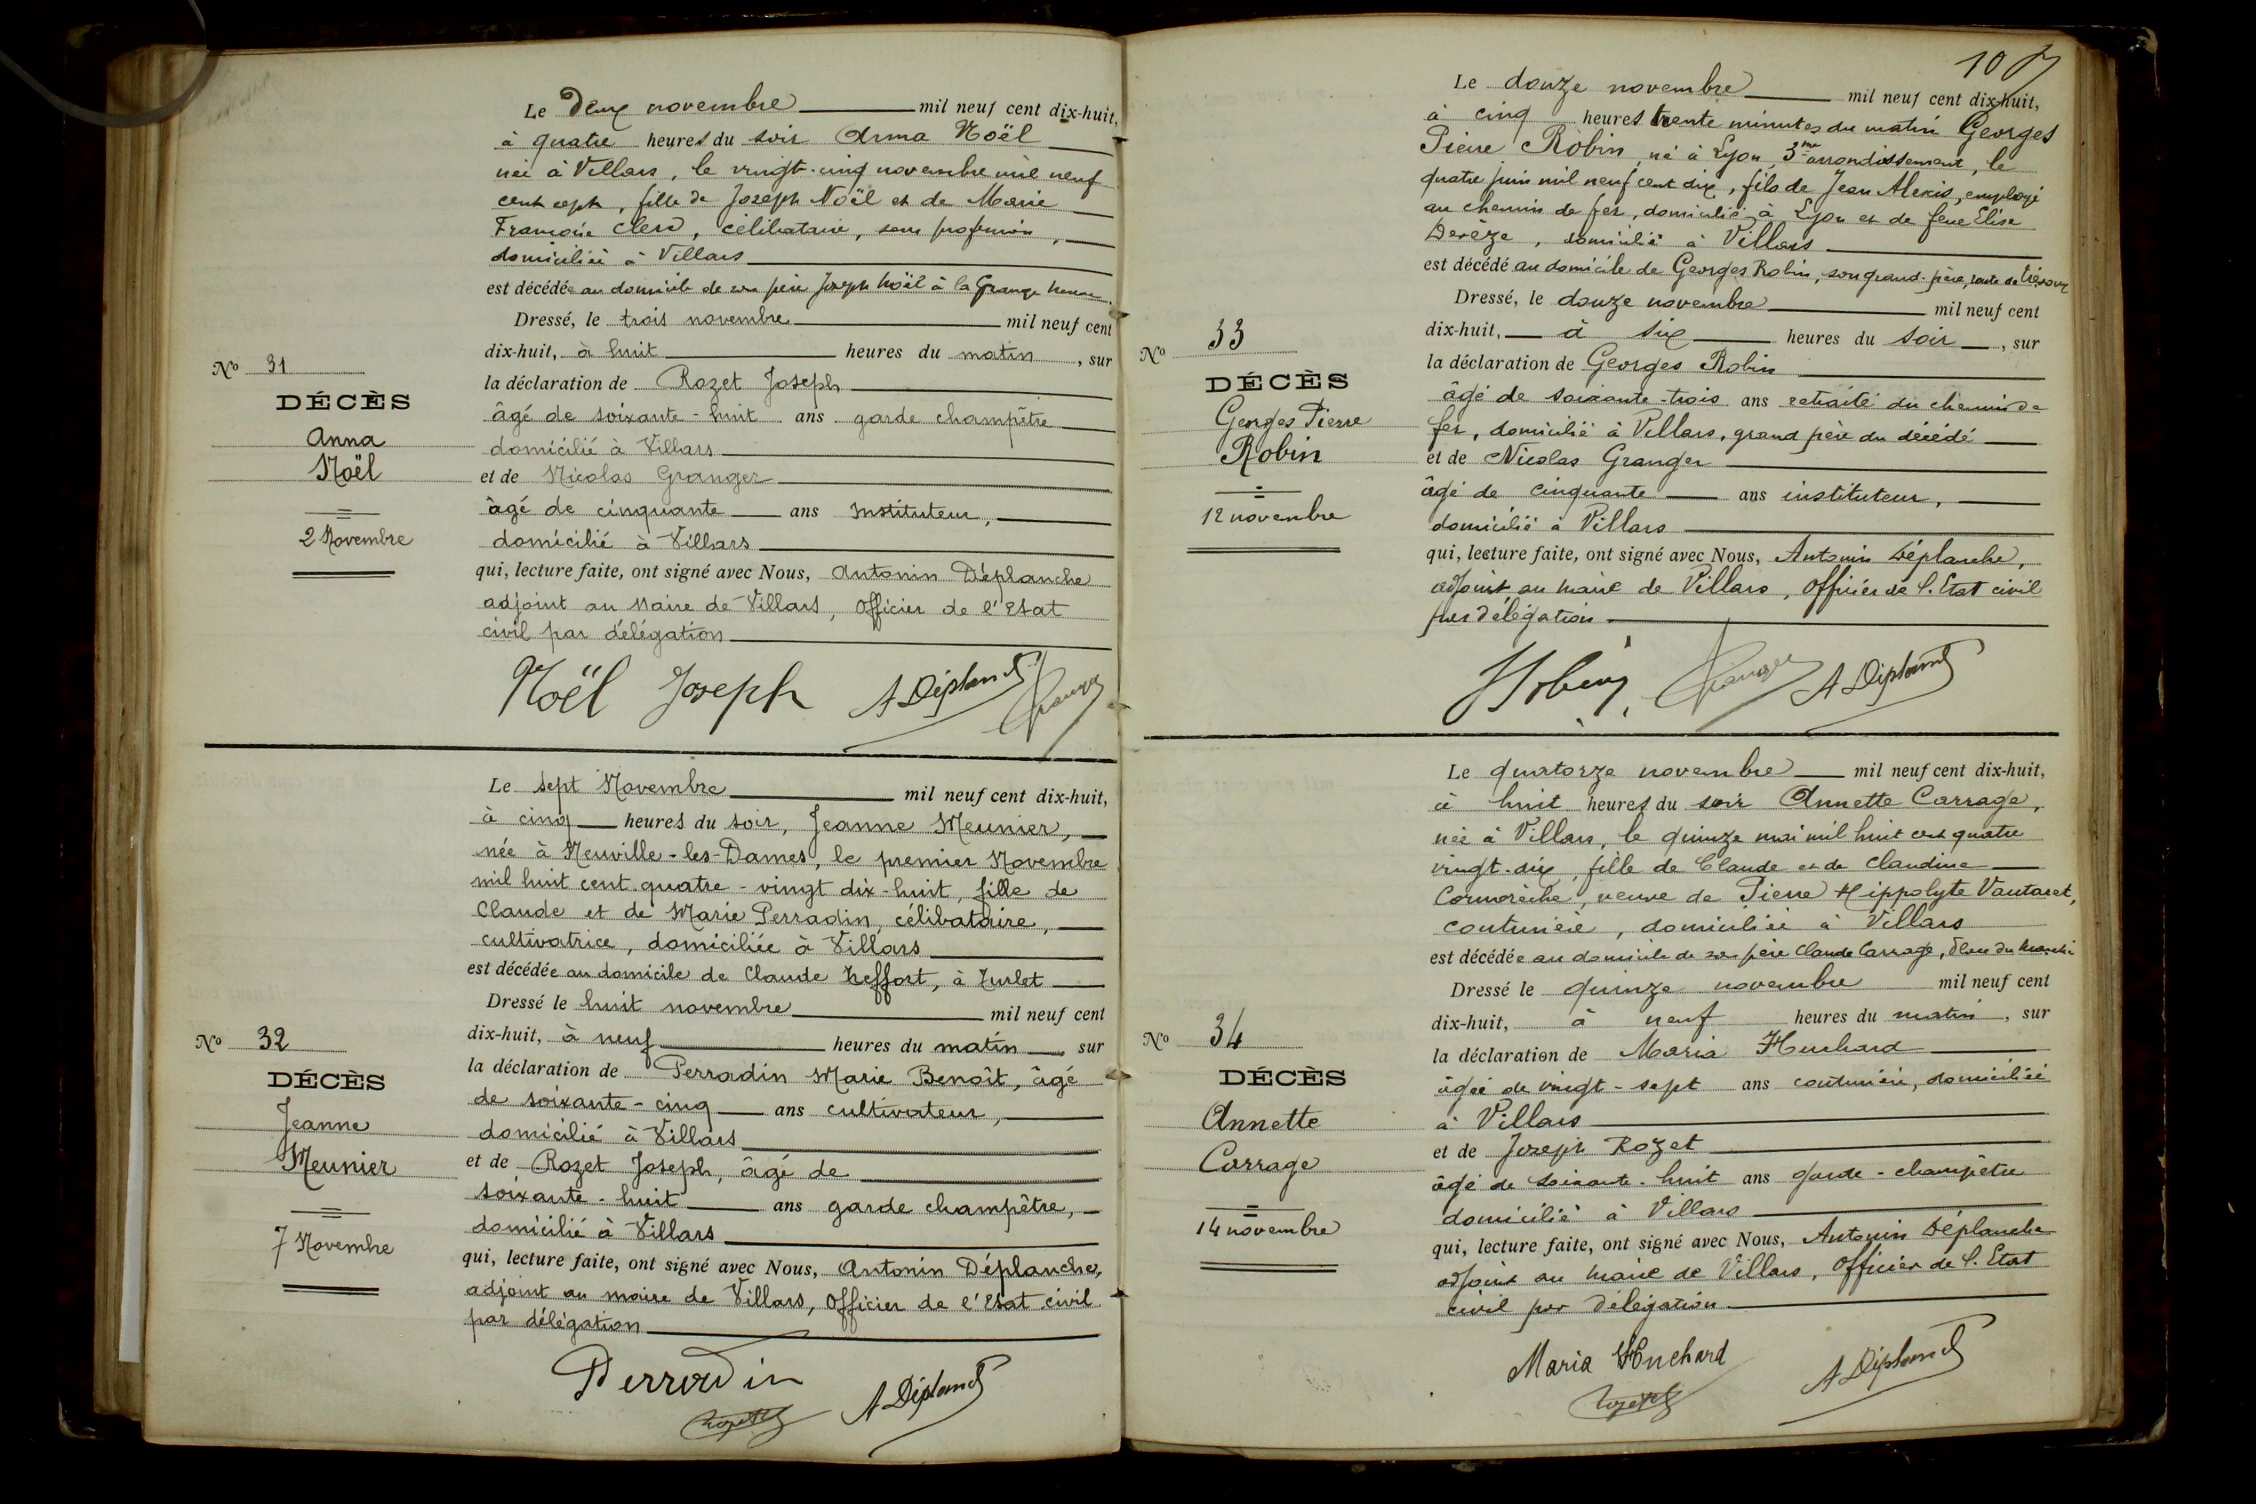 Le Deux novembre mil neuf cent dix-huit,
à quatre heures du soir Anna Noël
née à Villars, le vingt-cinq novembre mil neuf
cent sept, fille de Joseph Noël et de Marie
Françoise Clerc, célibataire, sans profession,
domiciliée à Villars
est décédée au domicile de son père Joseph Noël à la Grange
Dressé, le trois novembre mil neuf cent
dix-huit, à huit heures du matin, sur
la déclaration de Rozet Joseph
âgé de soixante-huit ans garde champêtre
domicilié à Villars
et de Nicolas Granger
âgé de cinquante ans Instituteur,
domicilié à Villars
qui, lecture faite, ont signé avec Nous, Antonin Déplanche
adjoint au Maire de Villars, Officier de l'Etat
civil par délégation
Noël Joseph A Déplanche Granger
No 31
DÉCÈS
Anna
Noël
2 Novembre
Le sept Novembre mil neuf cent dix-huit,
à cinq heures du soir, Jeanne Meunier,
née à Neuville-les-Dames, le premier Novembre
mil huit cent quatre-vingt dix-huit, fille de
Claude et de Marie Perradin, célibataire,
cultivatrice, domiciliée à Villars
est décédée au domicile de Claude Neffort, à Turlet
Dressé le huit novembre mil neuf cent
dix-huit, à neuf heures du matin, sur
la déclaration de Perradin Marie Benoît, âgé
de soixante-cinq ans cultivateur,
domicilié à Villars
et de Rozet Joseph, âgé de
soixante-huit ans garde champêtre,
domicilié à Villars
qui, lecture faite, ont signé avec Nous, Antonin Déplanche,
adjoint au maire de Villars, Officier de l'Etat civil
par délégation
Perradin
Rozet A Déplanche
No 32
DÉCÈS
Jeanne
Meunier
7 Novembre
107
Le douze novembre mil neuf cent dix-huit,
à cinq heures trente minutes du matin Georges
Pierre Robin, né à Lyon, 3me arrondissement, le
quatre juin mil neuf cent dix, fils de Jean Alexis, employé
au chemin de fer, domicilié à Lyon et de feue Elise
Derèze, domicilié à Villars
est décédé au domicile de Georges Robin, son grand-père, route de
Dressé, le douze novembre mil neuf cent
dix-huit, à six heures du soir, sur
la déclaration de Georges Robin
âgé de soixante-trois ans retraité du chemin de
fer, domicilié à Villars, grand père du décédé
et de Nicolas Granger
âgé de cinquante ans instituteur,
domicilié à Villars
qui, lecture faite, ont signé avec Nous, Antonin Déplanche,
adjoint au maire de Villars, officier de l'Etat civil
par délégation
Robin Granger A Déplanche
No 33
DÉCÈS
Georges Pierre
Robin
12 novembre
Le quatorze novembre mil neuf cent dix-huit,
à huit heures du soir Annette Carrage,
née à Villars, le quinze mai mil huit cent quatre
vingt-dix, fille de Claude et de Claudine
Cormorèche, veuve de Pierre Hippolyte Vautaret,
couturière, domiciliée à Villars
est décédée au domicile de son père Claude Carrage, Place du Marché
Dressé le quinze novembre mil neuf cent
dix-huit, à neuf heures du matin, sur
la déclaration de Maria Huchard
âgée de vingt-sept ans couturière, domiciliée
à Villars
et de Joseph Rozet
âgé de soixante-huit ans garde-champêtre
domicilié à Villars
qui, lecture faite, ont signé avec Nous, Antonin Déplanche
adjoint au maire de Villars, Officier de l'Etat
civil par délégation
Maria Huchard
Rozet A Déplanche
No 34
DÉCÈS
Annette
Carrage
14 novembre